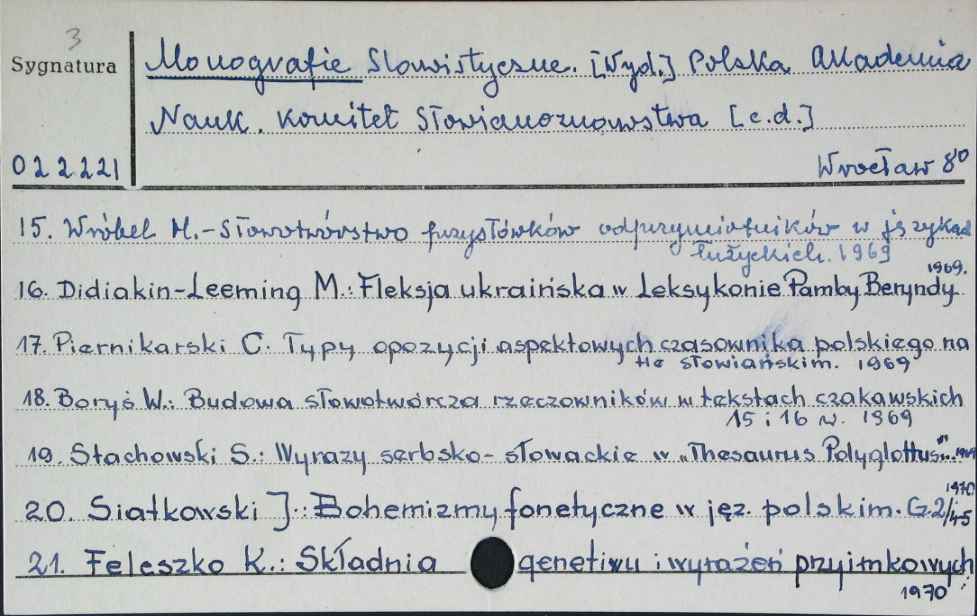 3
Sygnatura
Monografie Slawistyczne. [Wyd.] Polska Akademia
Nauk. Komitet Słowianoznawstwa [c.d.]
022221
Wrocław 8⁰
15. Wróbel H.-Słowotwórstwo przysłówków odprzymiotnikków w językach
łużyckich. 1969
16. Didiakin-Leeming M.: Fleksja ukraińska w Leksykonie Pamby Beryndy. 1969.
17. Piernikarski C. Typy opozycji aspektowych czasownika polskiego na
tle słowiańskim. 1969
18. Boryś W.: Budowa słowotwórcza rzeczowników w tekstach czakawskich
15 i 16 w. 1969
19. Stachowski S.: Wyrazy serbsko-słowackie w „Thesaurus Polyglottus". 1969
20. Siatkowski J.: Bohemizmy fonetyczne w jęz. polskim. Cz. 2 1970
21. Feleszko K.: Składnia genetiwu i wyrażeń przyimkowych
1970